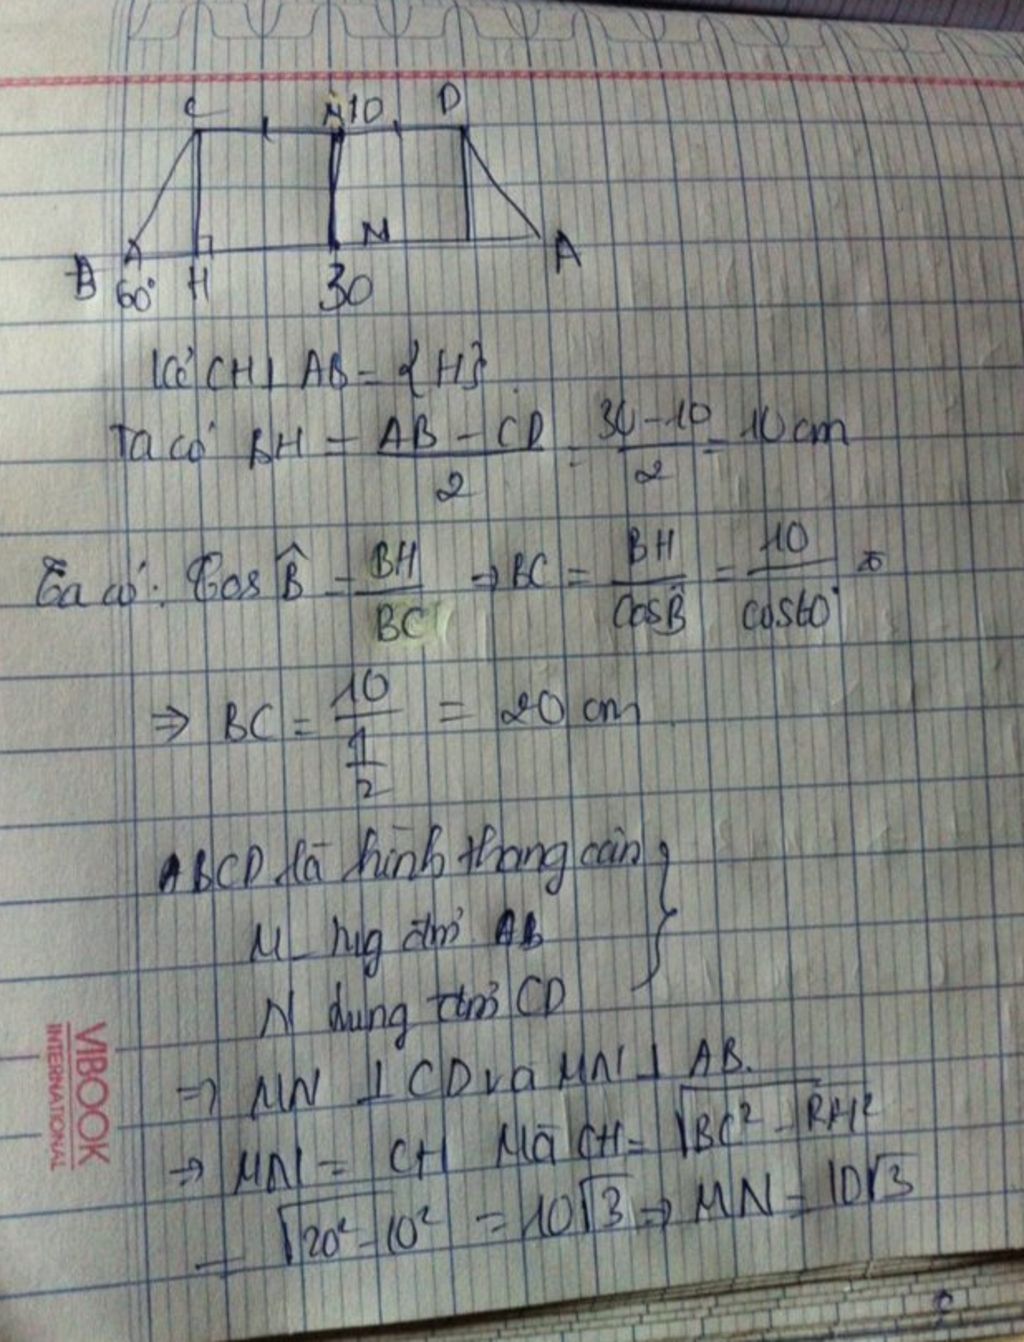 C M 10 D
B 60° H 30 N A
Kẻ CH ⊥ AB = {H}
Ta có BH = \frac{AB - CD}{2} = \frac{30 - 10}{2} = 10 cm
Ta có: Cos \hat{B} = \frac{BH}{BC} → BC = \frac{BH}{Cos \hat{B}} = \frac{10}{cos60°}
⇒ BC = \frac{10}{\frac{1}{2}} = 20 cm
ABCD là hình thang cân
M AB
N CD
⇒ MN ⊥ CD và MN ⊥ AB.
⇒ MN = CH Mà CH = \sqrt{BC² - BH²}
= \sqrt{20² - 10²} = 10√3 ⇒ MN = 10√3
VIBOOK
INTERNATIONAL